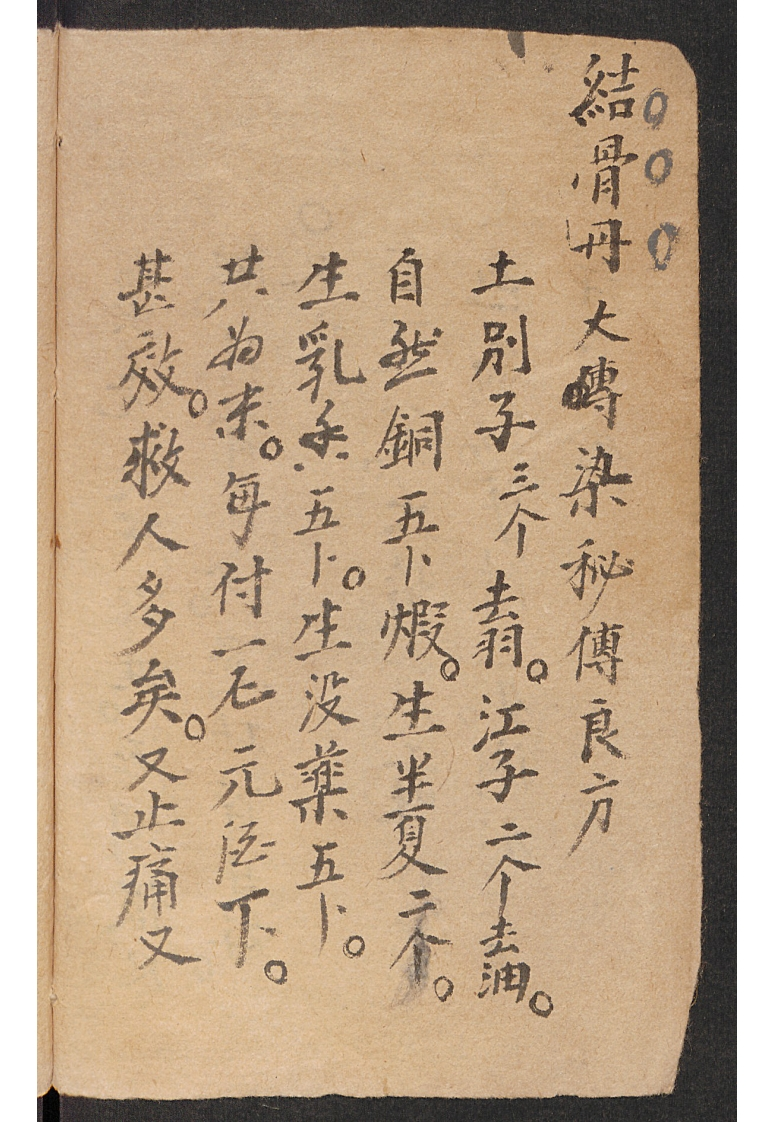 結骨丹大嗼染秘傅良方
土别子三个去翁。江子二个去油。
自然銅五卜煆。生半夏二个。
生乳香五卜。生没藥五卜。
共為末。每付一 元酒下。
甚效。救人多矣。又止痛又